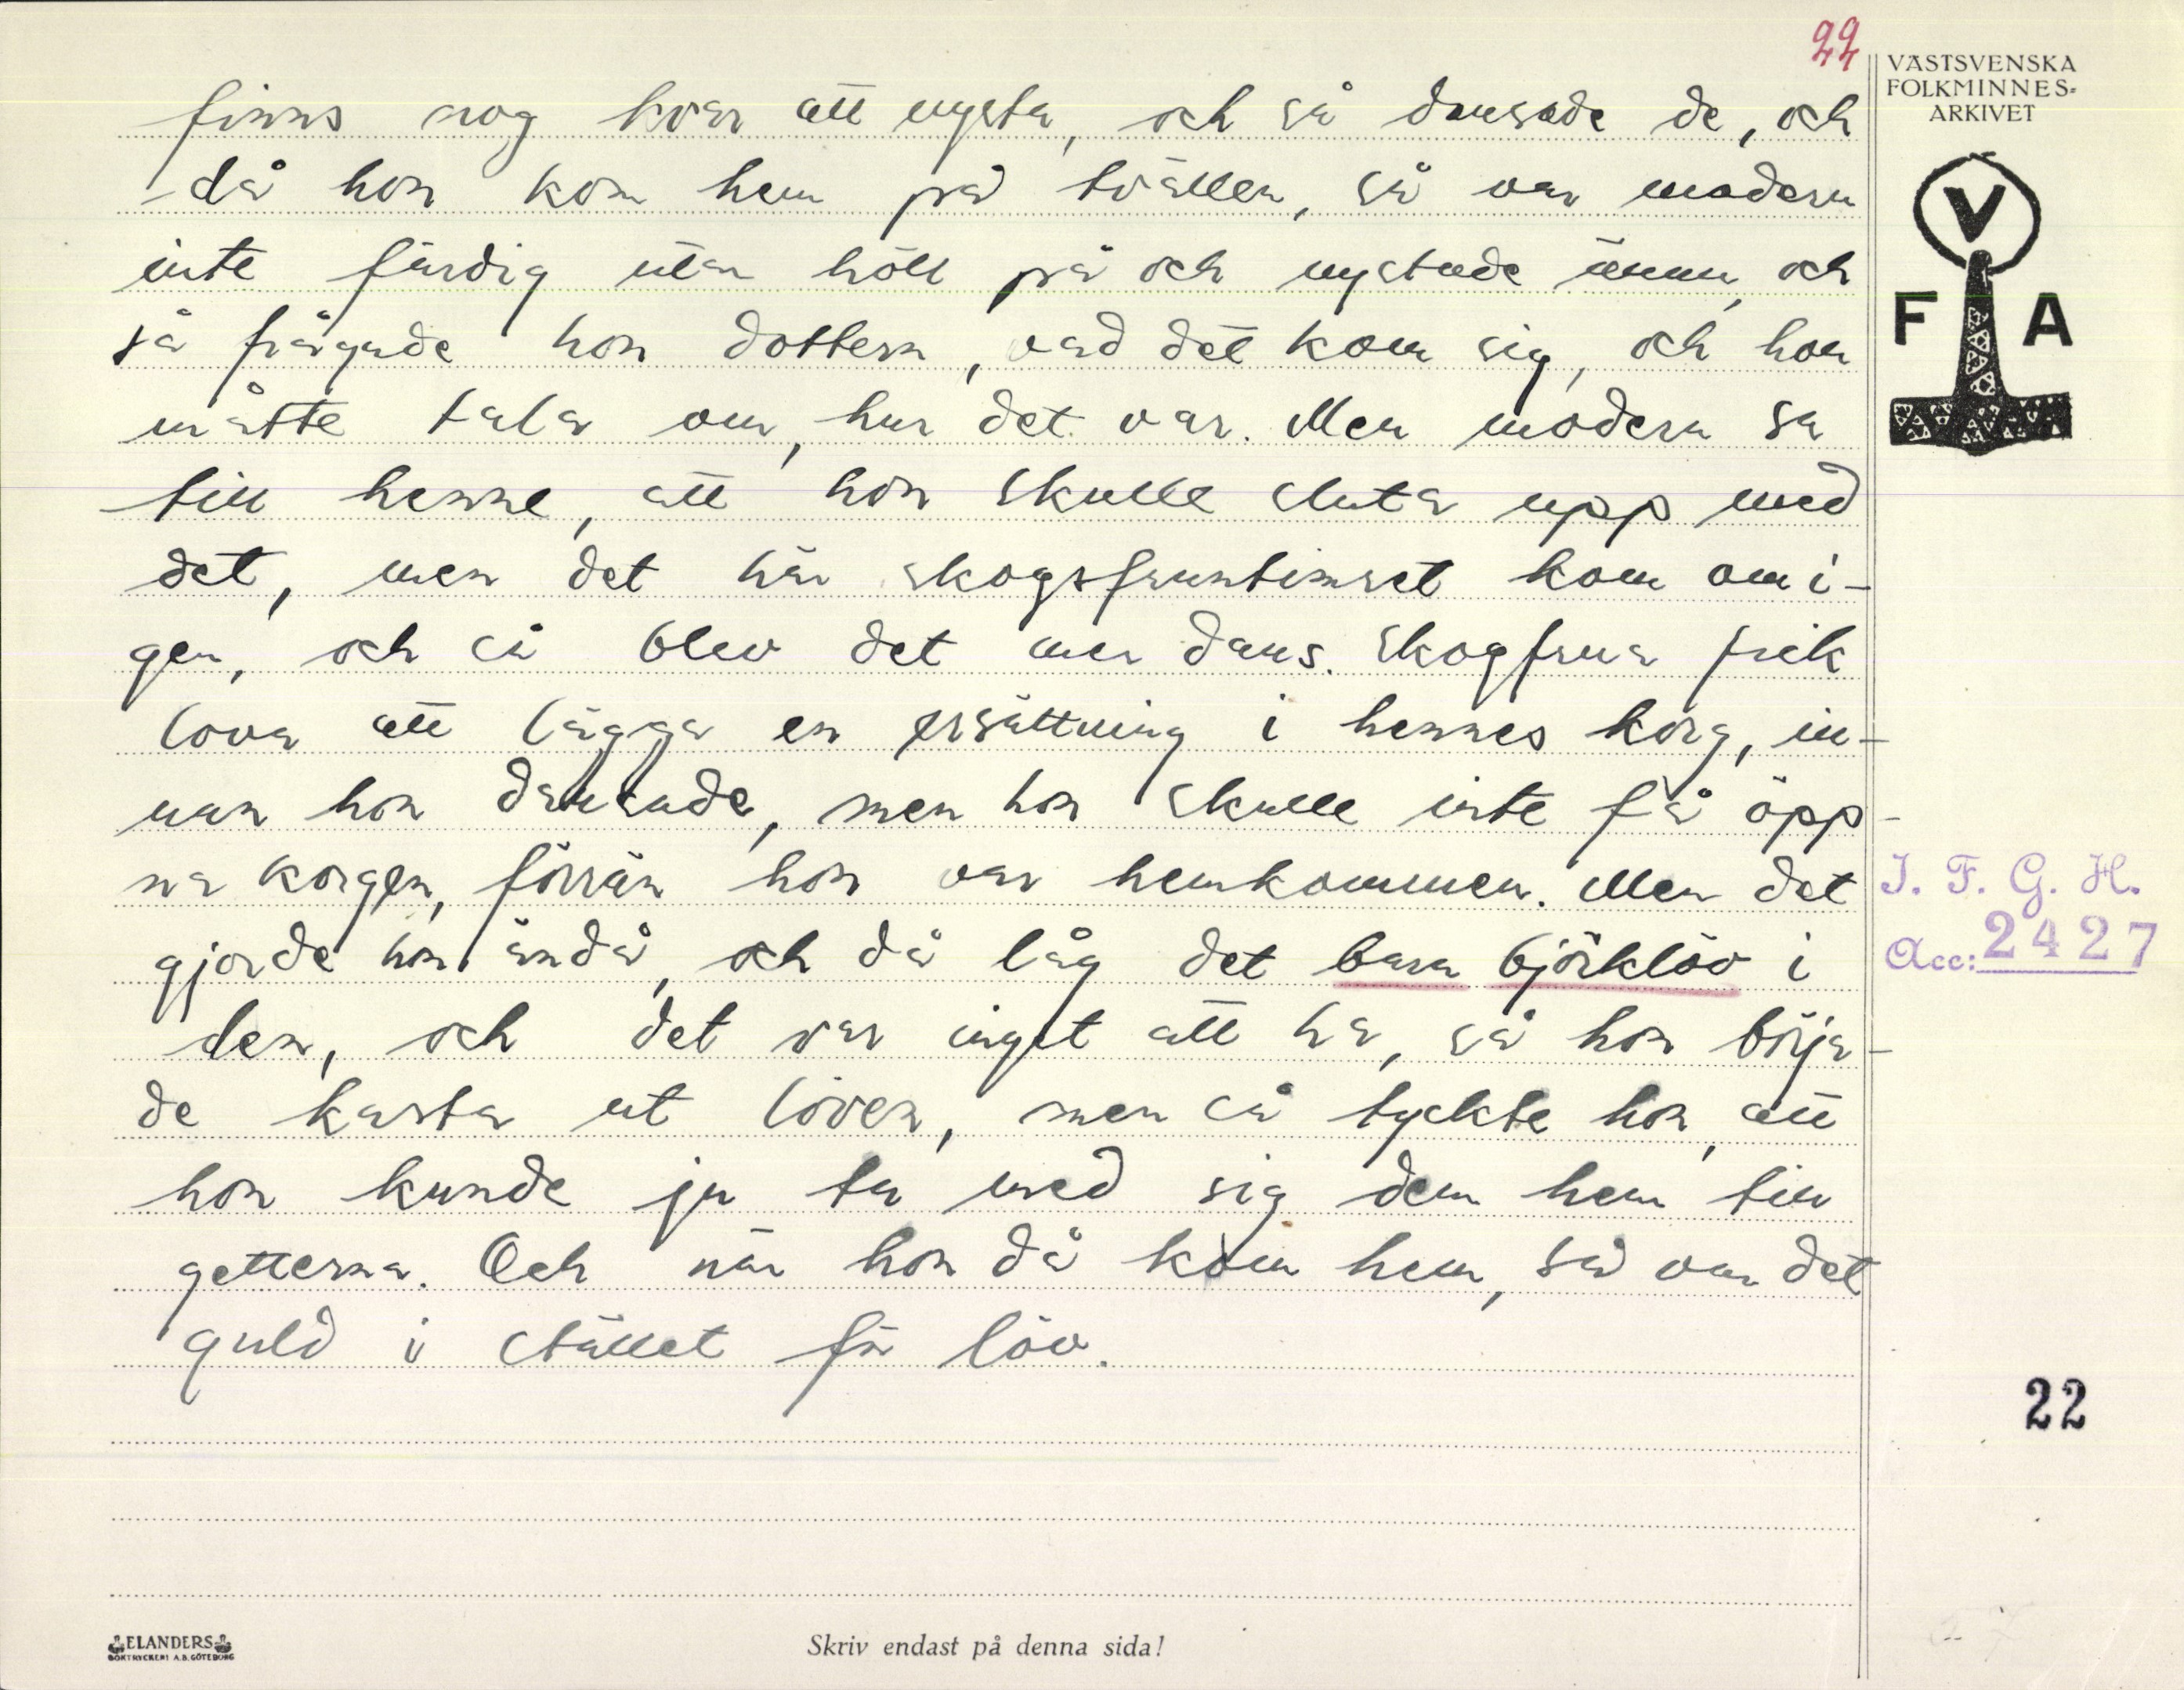 22
VÄSTSVENSKA
FOLKMINNES-
ARKIVET
V
F A
finns nog kvar att nysta, och så dansade de, och
då hon kom hem på kvällen, så var modern
inte färdig utan höll på och nystade ännu, och
så frågade hon dottern, vad det kom sig, och hon
måtte tala om, hur det var. Men modern sa
till henne, att hon skulle sluta upp med
det, men det här skogsfruntimret kom om i-
gen, och så blev det mer dans. Skogfrua fick
lova att lägga en ersättning i hennes korg, in-
nan hon dansade, men hon skulle inte få öpp-
na korgen, förrän hon var hemkommen. Men det
gjorde hon ändå, och då låg det bara björklöv i
den, och det var inget att ha, så hon börja-
de kasta ut löven, men så tyckte hon, att
hon kunde ju ta med sig dem hem till
getterna. Och när hon då kom hem, så var det
guld i stället för löv.
I. F. G. H.
Acc: 2427
22
ELANDERS
BOKTRYCKERI A.B. GÖTEBORG
Skriv endast på denna sida!